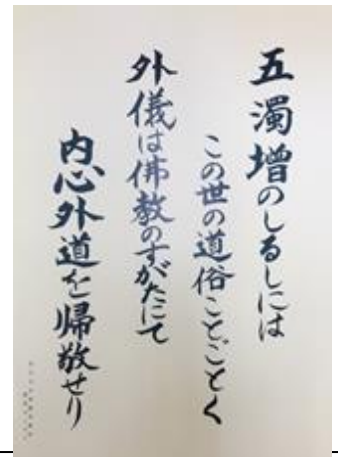 五濁増のしるしには
この世の道俗ことごとく
外儀は佛教のすがたにて
内心外道を帰敬せり